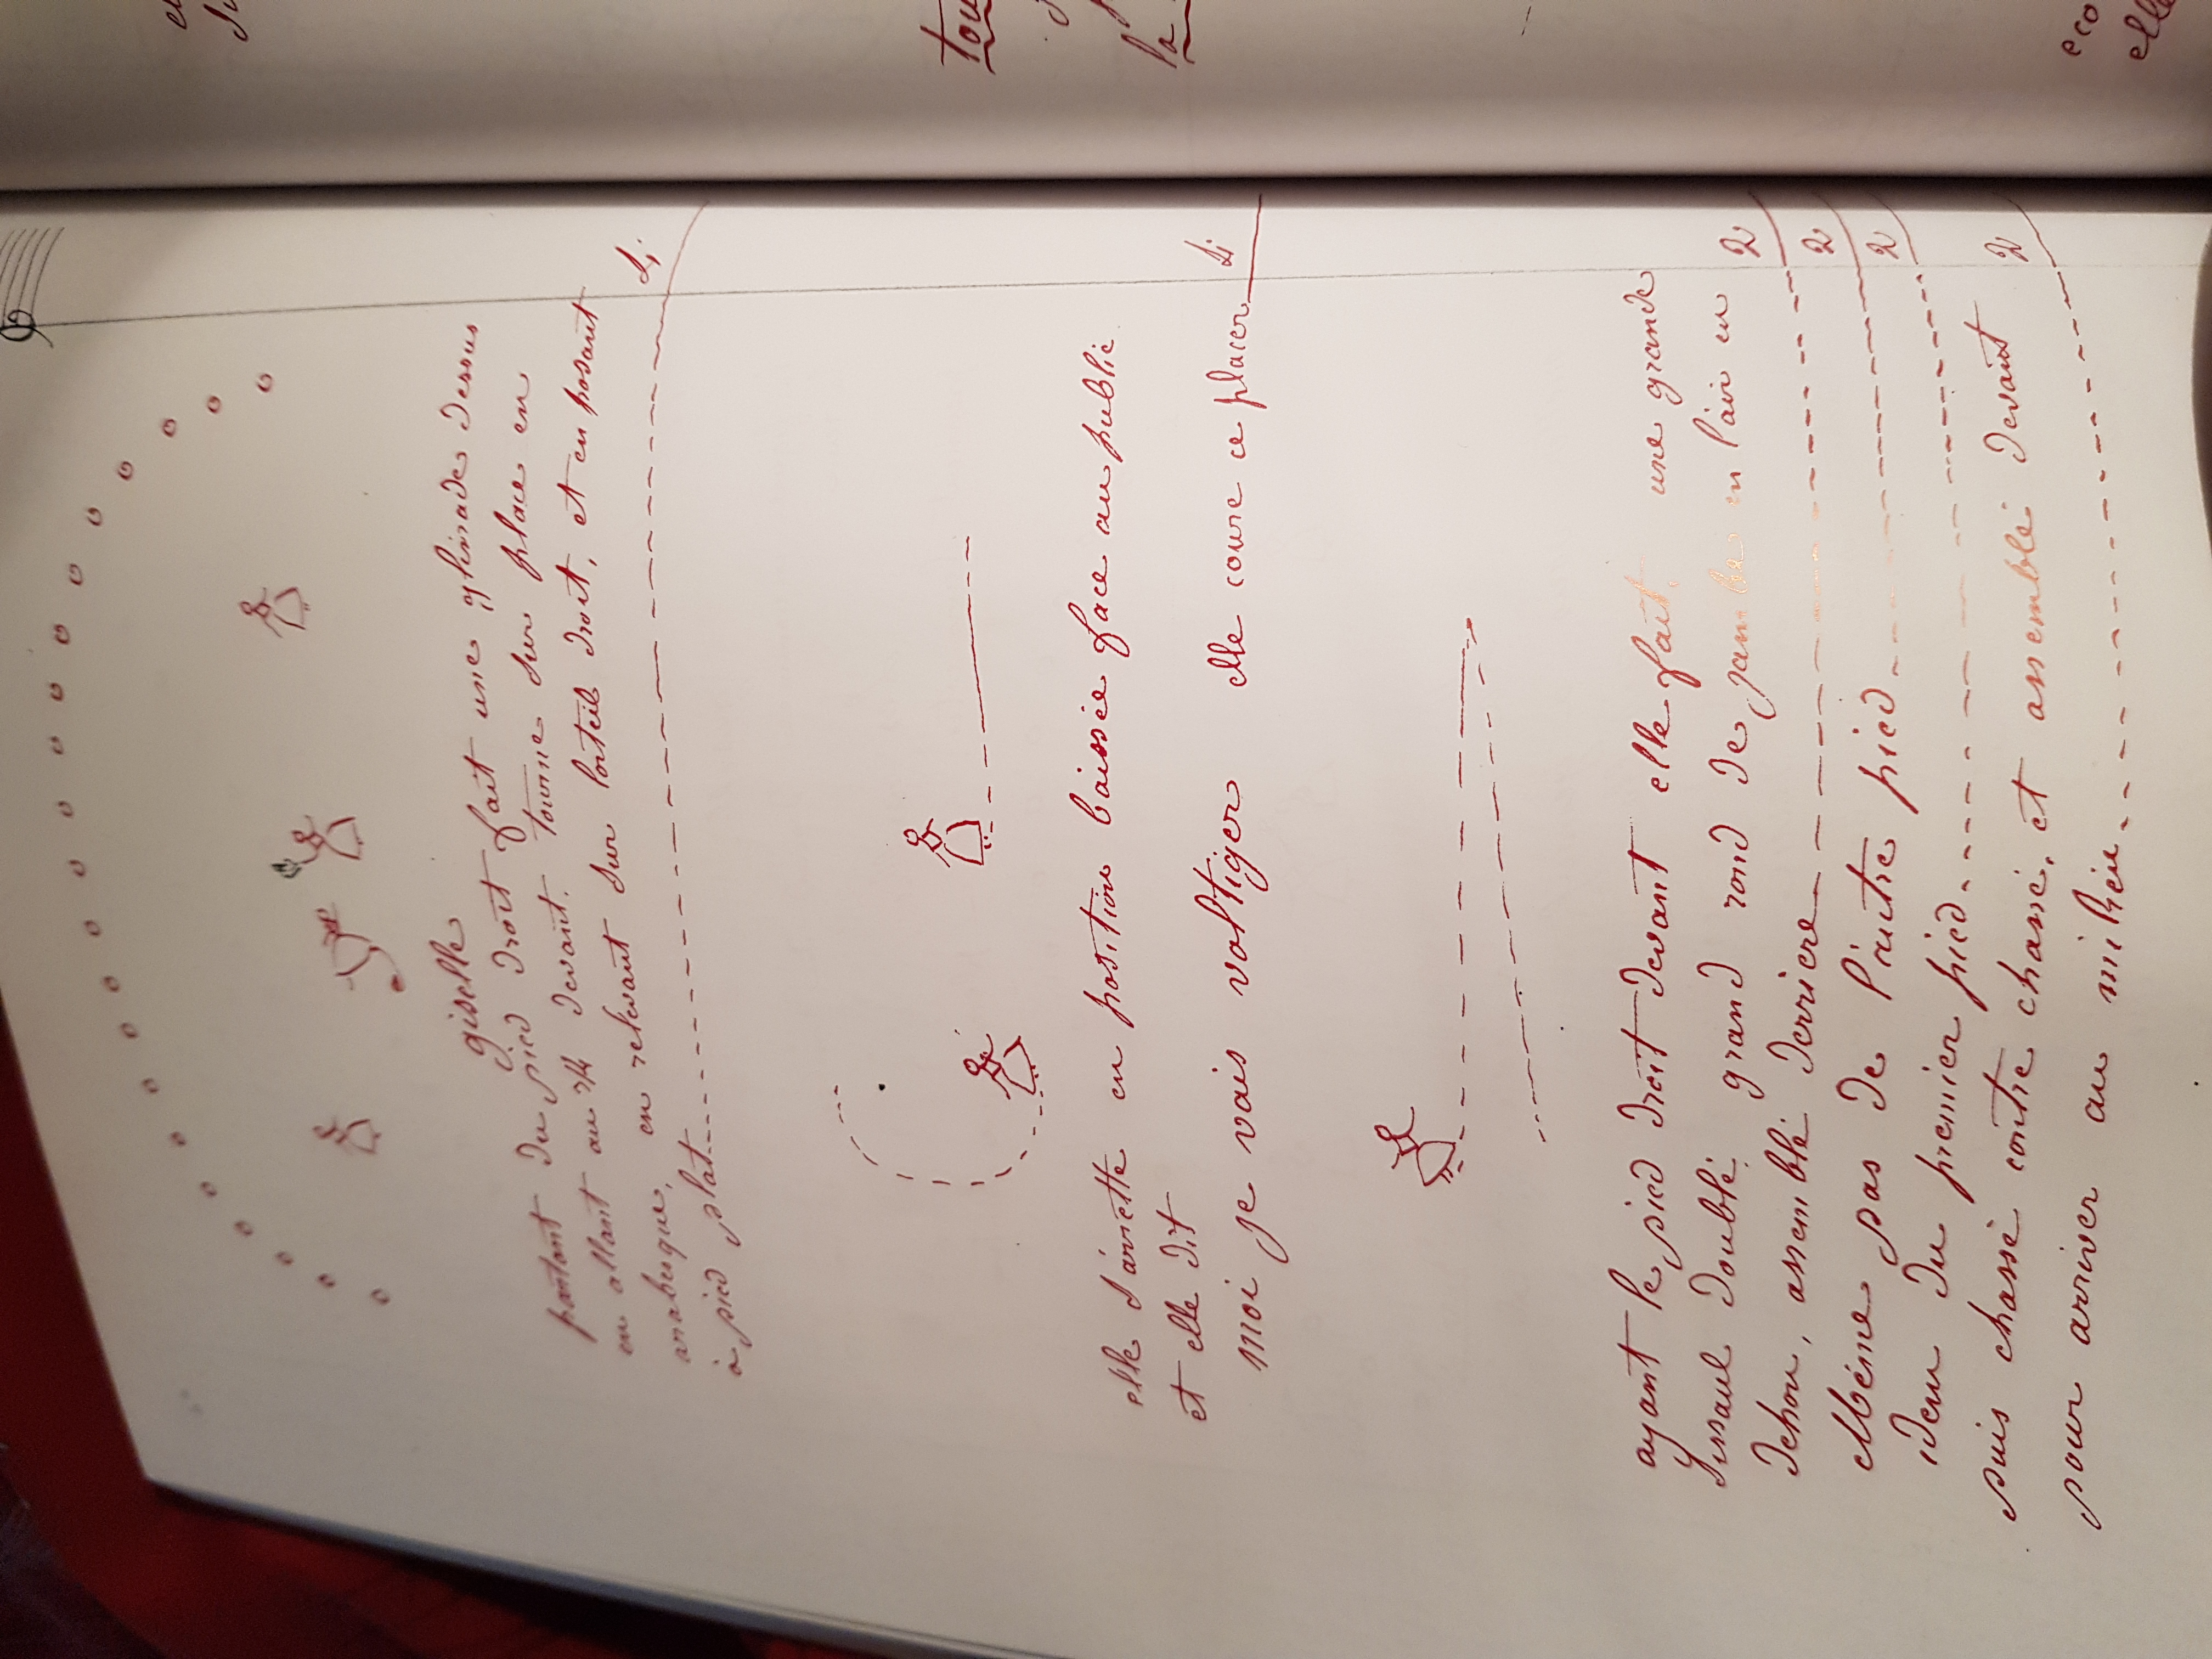 giselle
partant du pied droit fait une glissade dessus
en allant au 4 devant. tourne sur place en
arabesque, en relevant sur l'orteil droit, et en posant
à pied plat
elle s'arrette en position baissée face au public
et elle dit
moi je vais voltiger elle coure ce placer
ayant le pied droit devant elle fait, une grande
sissone doublé grand rond de jambe en l'air en
dehor, assemblé derriere 2
Même pas de l'autre pied 2
idem du premier pied 2
puis chassé contre chassé, et assemblé devant
pour arriver au milieu 2
tou
la
eco
elle